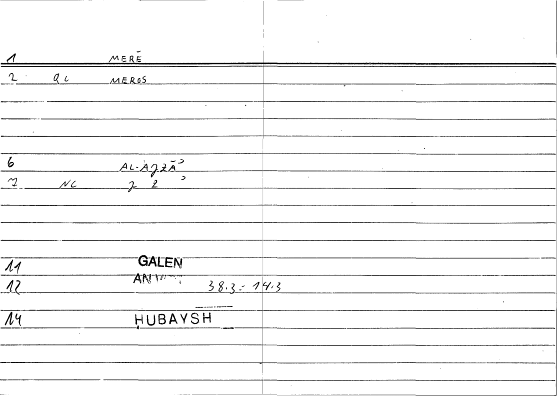 1 MERĒ
2 QL MEROS
6 AL-AJZĀʾ
7 NC J Z ʾ
11 GALEN
12 38.3 = 14.3
14 ḤUBAYSH